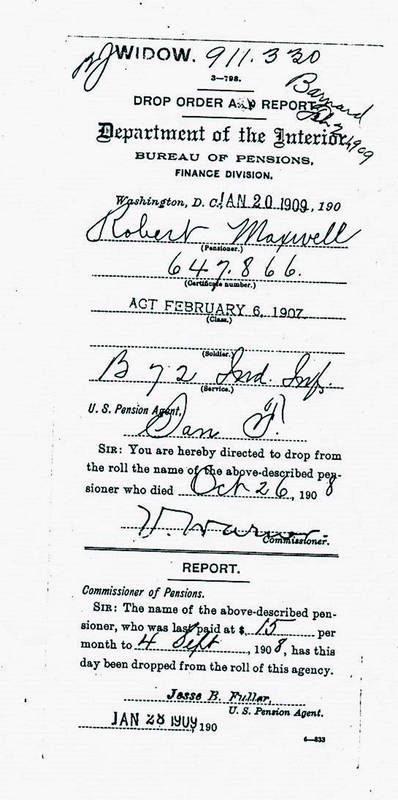 WIDOW. 911.330
3—798.
Barnard
DROP ORDER AND REPORT
Feb 2, 1909
Department of the Interior,
BUREAU OF PENSIONS,
FINANCE DIVISION.
Washington, D. C., JAN 20 1909, 190
Robert Maxwell
(Pensioner.)
647.866.
(Certificate number.)
ACT FEBRUARY 6, 1907.
(Class.)
(Soldier.)
B 72 Ind. Inf.
(Service.)
U. S. Pension Agent,
San F.
SIR: You are hereby directed to drop from
the roll the name of the above-described pen-
sioner who died Oct 26, 1908
V. Warner
Commissioner.
REPORT.
Commissioner of Pensions.
SIR: The name of the above-described pen-
sioner, who was last paid at $ 15 per
month to 4 Sept, 1908, has this
day been dropped from the roll of this agency.
Jesse B. Fuller,
U. S. Pension Agent.
JAN 28 1909, 190
6—833